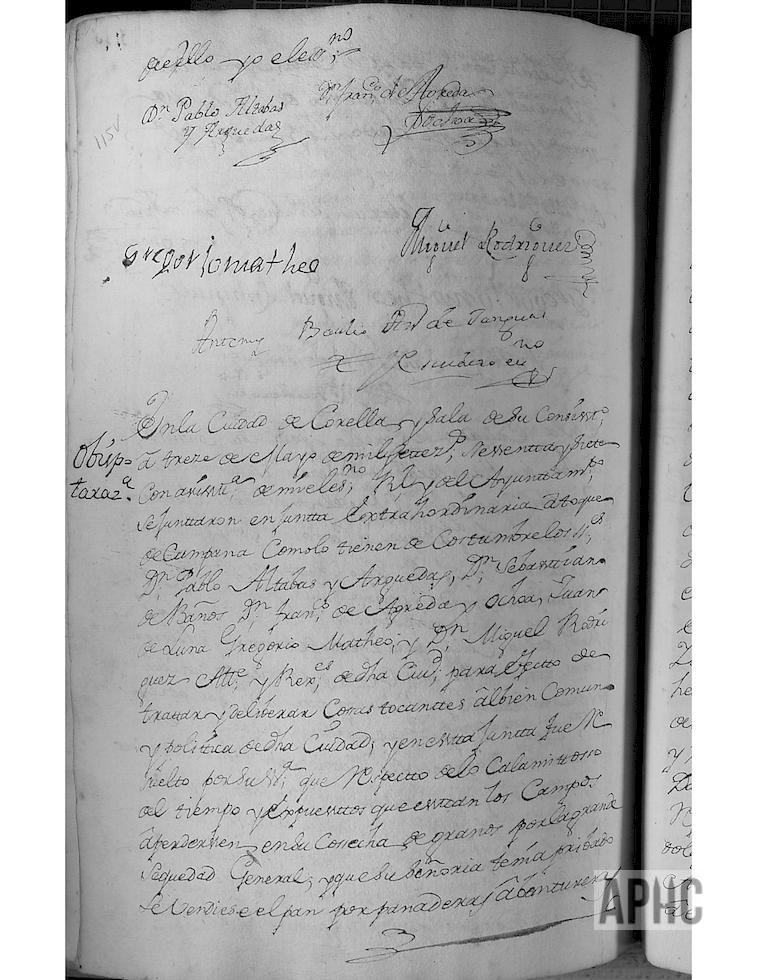 de ello yo el ess.no
D.n Pablo Altabas
y Arguedas
D.n Fran.co de Apreda
y Ochoa
115v
Gregorio matheo
Miguel Rodriguez
Antemy Braulio Ant.o de
Escudero es.no
En la Ciudad de Corella, y Sala de su Consist.o
Obisp.o
taraz.a
a treze de Mayo de mil settez.s Sessentta y Siete
Con asistt.a de mi el es.no R.l y del Ayunttam.to
Se Junttaron en Juntta Extrahordinaria a toque
de Campana Como lo tienen de Costumbre los SS.s
D.n Pablo Altabas y Arguedas, D.n Sebasttian
de Baños D.n Fran.co de Apreda y Ochoa, Juan
de Luna Gregorio Matheo, y D.n Miguel Rodri
guez Alc.e y Rex.es de dha Ciu.d para efectto de
trattar y deliberar Cosas tocanttes al bien Comun
y politica de dha Ciudad; y en estta Juntta fue Re
sueltto por su SS.a que Respectto de lo Calamittosso
del tiempo y Expuesttos que esttan los Campos
a perdersen en su Cosecha de granos por la grande
Sequedad General, y que su Señoria tenia pribado
Se Vendiese el pan por panaderas abentureras
APHC